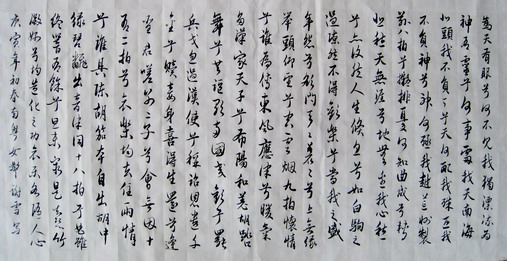 為天有眼兮何不見我獨漂流為
神有靈兮何事處我天南海
北頭我不負天兮天何配我殊匹我
不負神兮神何殛我越荒州製
茲八拍兮擬排憂何知曲成兮轉
愁天無涯兮地無邊我心愁
兮亦復然人生倏忽兮如白駒之
過隙然不得歡樂兮當我之盛
年怨兮欲問天天蒼蒼兮上無緣
舉頭仰望兮空雲煙九拍懷情
兮誰與傳東風應律兮暖氣
多漢家天子兮布陽和羌胡蹈
舞兮共謳歌兩國交歡兮罷
兵戈忽遇漢使兮稱近詔遺千
金兮贖妾身喜得生還兮逢
聖君嗟別稚子兮會無因十
有二拍兮哀樂均去住兩情
兮難具陳胡笳本自出胡中
緣琴翻出音律同十八拍兮曲雖
終響有餘兮思無窮是知絲竹
微妙兮均造化之功哀樂各隨人心
庚寅年初春 女 謝雪寫